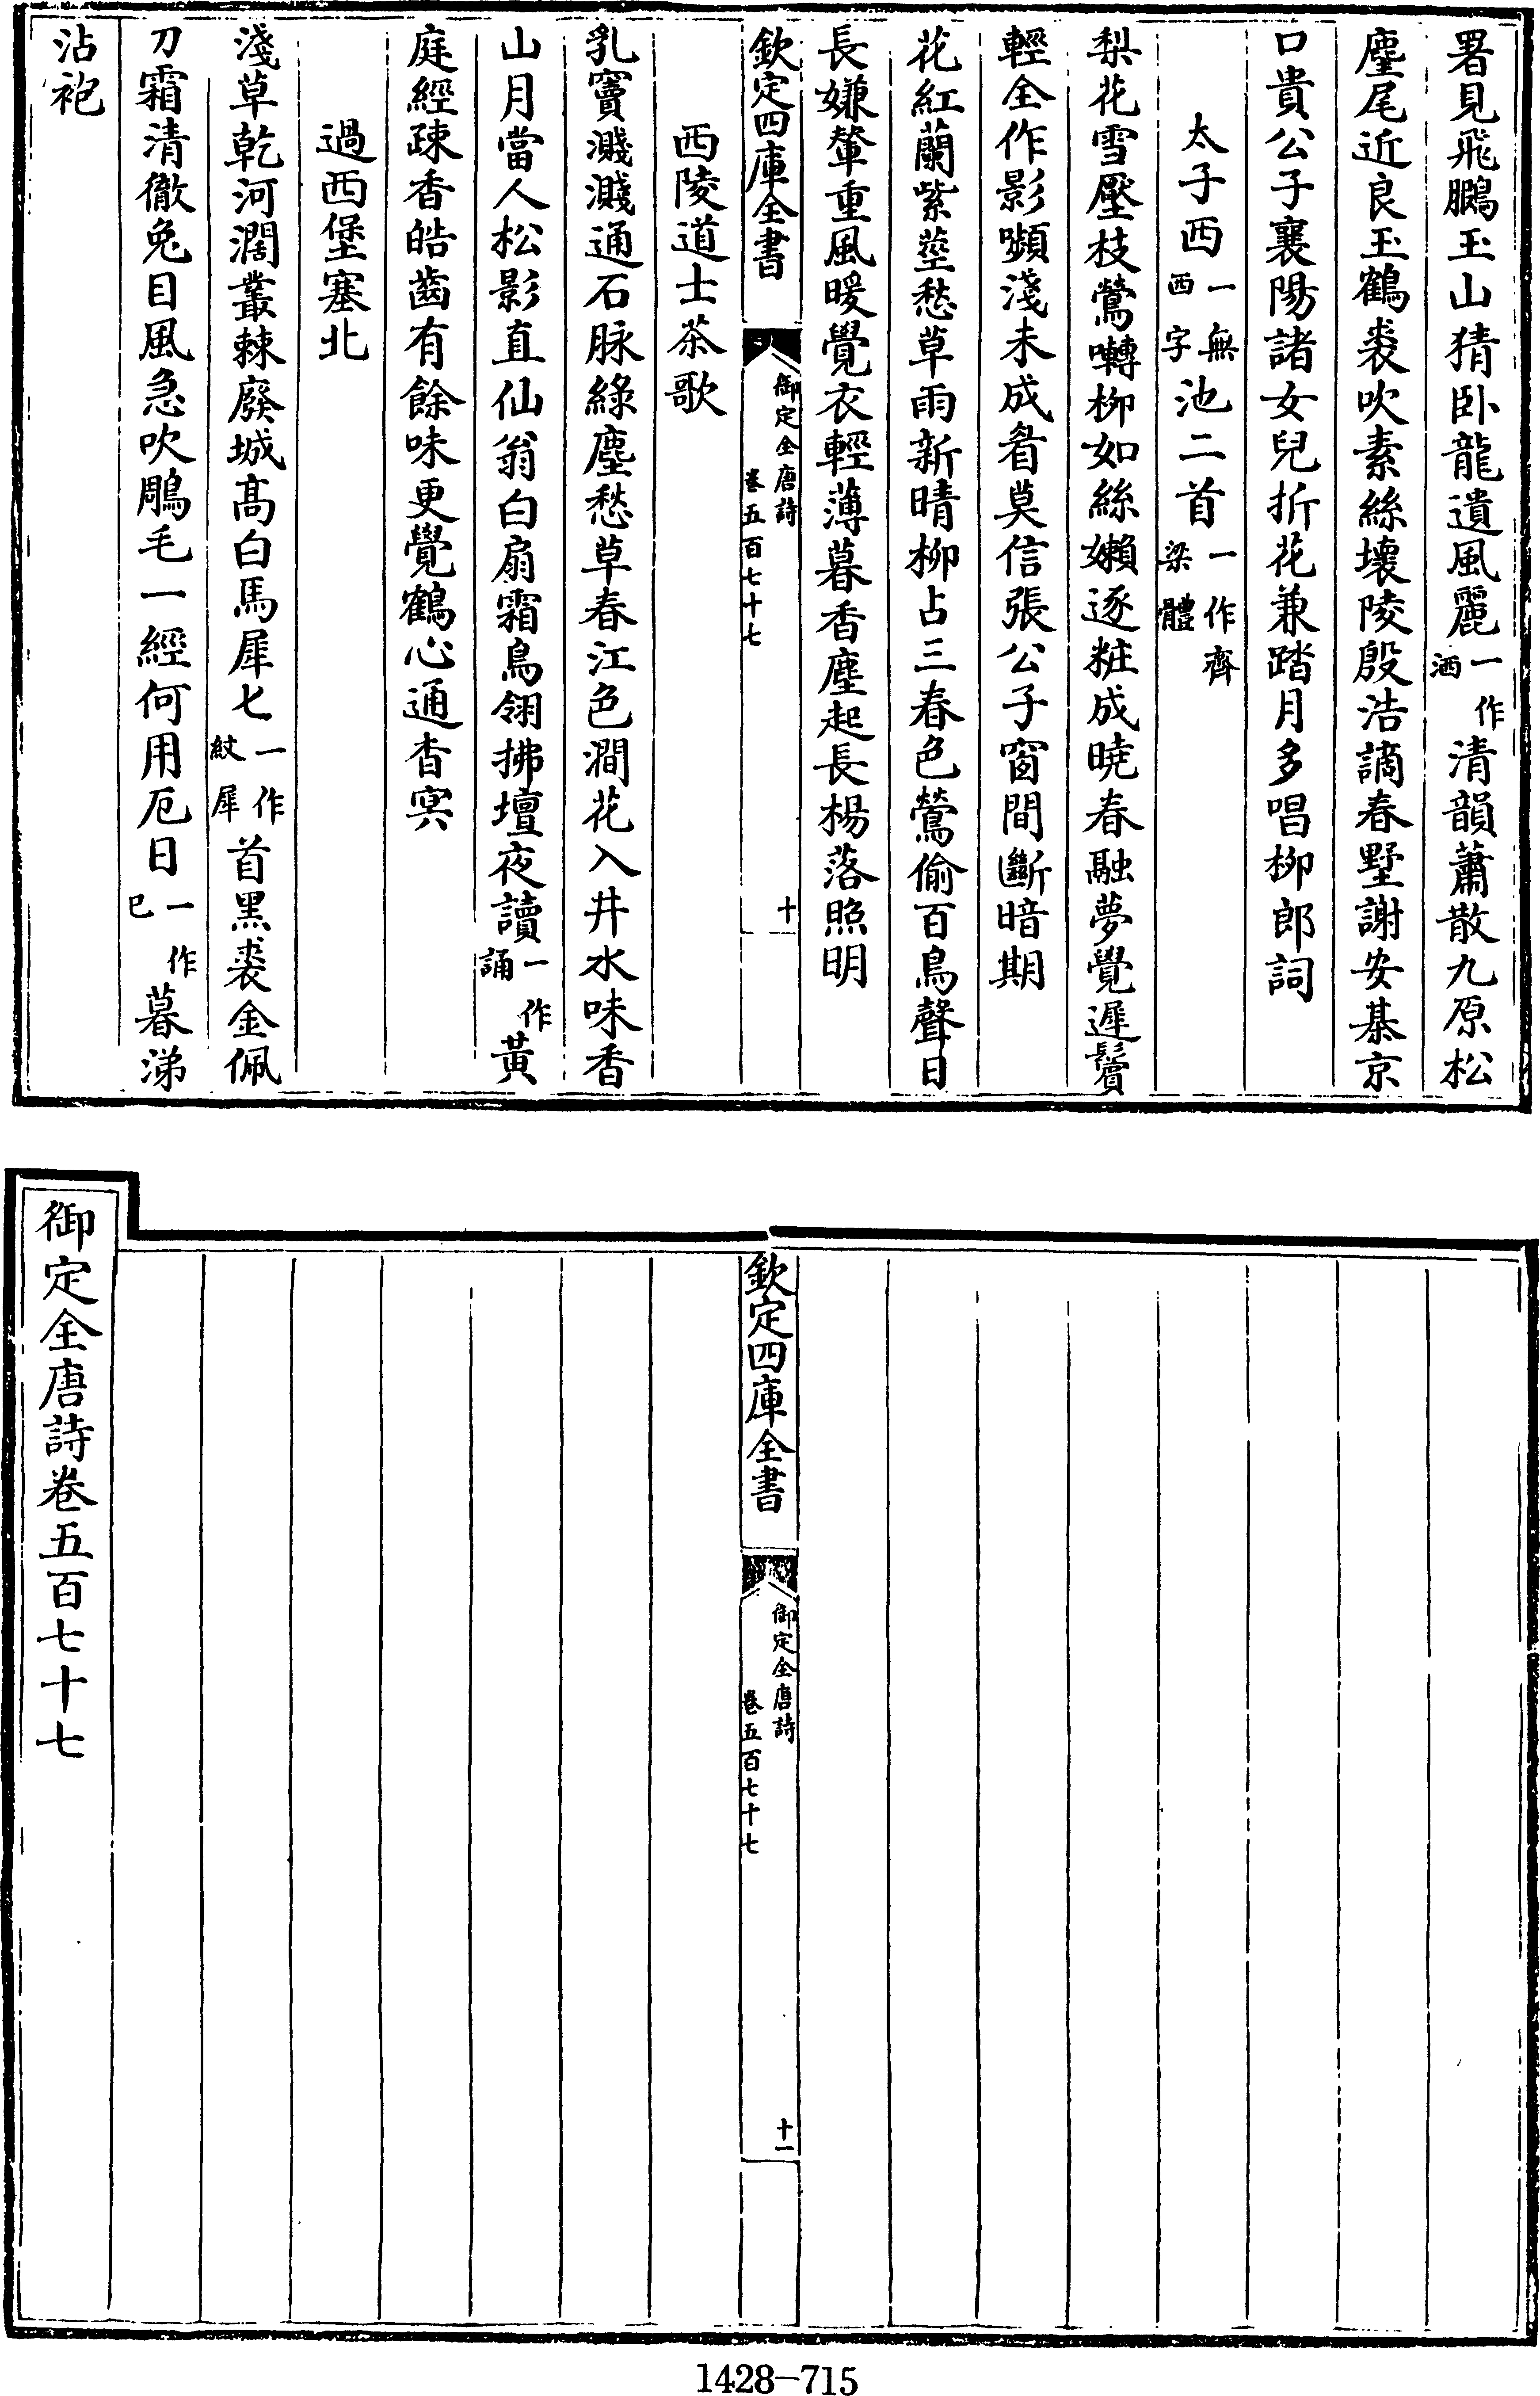 署見飛鵬玉山猜卧龍遺風麗一作洒清韻蕭散九原松
麈尾近良玉鶴裘吹素絲壊陵殷浩謫春墅謝安棊京
口貴公子襄陽諸女兒折花兼踏月多唱柳郎詞
太子西一無西字池二首一作齊梁體
梨花雪壓枝鶯囀柳如絲嬾逐粧成曉春融夢覺遲鬢
輕全作影嚬淺未成眉莫信張公子窗間斷暗期
花紅蘭紫莖愁草雨新晴柳占三春色鶯偷百鳥聲日
長嫌輦重風暖覺衣輕薄暮香塵起長楊落照明
欽定四庫全書
御定全唐詩
卷五百七十七
十
西陵道士茶歌
乳竇濺濺通石脉綠塵愁草春江色澗花入井水味香
山月當人松影直仙翁白扇霜鳥翎拂壇夜讀一作誦黃
庭經疎香皓齒有餘味更覺鶴心通杳冥
過西堡塞北
淺草乾河濶叢棘廢城髙白馬犀匕一作紋犀首黑裘金佩
刀霜清徹兔目風急吹鵰毛一經何用厄日一作巳暮涕
沾袍
欽定四庫全書
御定全唐詩
卷五百七十七
十一
御定全唐詩卷五百七十七
1428-715